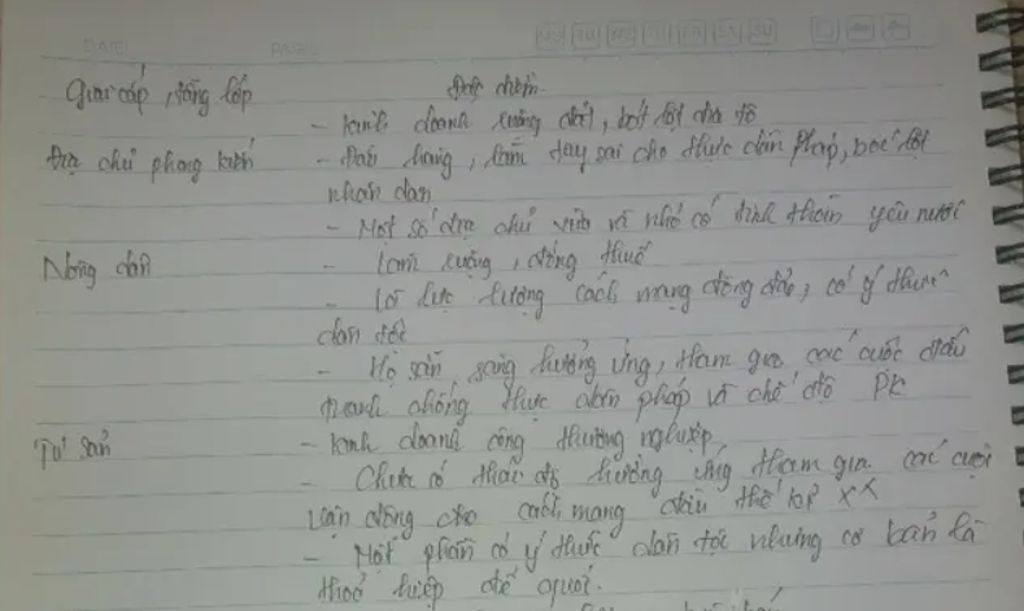 DATE: PAGE: MO TU WE TH FR SA SU
Giai cấp, tầng lớp Đặc điểm
- kinh doanh ruộng đất, bót lột địa tô
Địa chủ phong kiến - Đầu hàng, làm tay sai cho thực dân Pháp, bóc lột
nhân dân
- Một số địa chủ vừa và nhỏ có tinh thần yêu nước
Nông dân - làm ruộng, đóng thuế
- là lực lượng cách mạng đông đảo, có ý thức
dân tộc
- Họ sẵn sàng hưởng ứng, tham gia các cuộc đấu
tranh chống thực dân pháp và chế độ PK
Tư sản - kinh doanh công thương nghiệp
- Chưa có thái độ hưởng ứng tham gia các cuộc
vận động cho cách mạng đầu thế kỉ XX
- Một phần có ý thức dân tộc nhưng cơ bản là
thoả hiệp đế quốc.